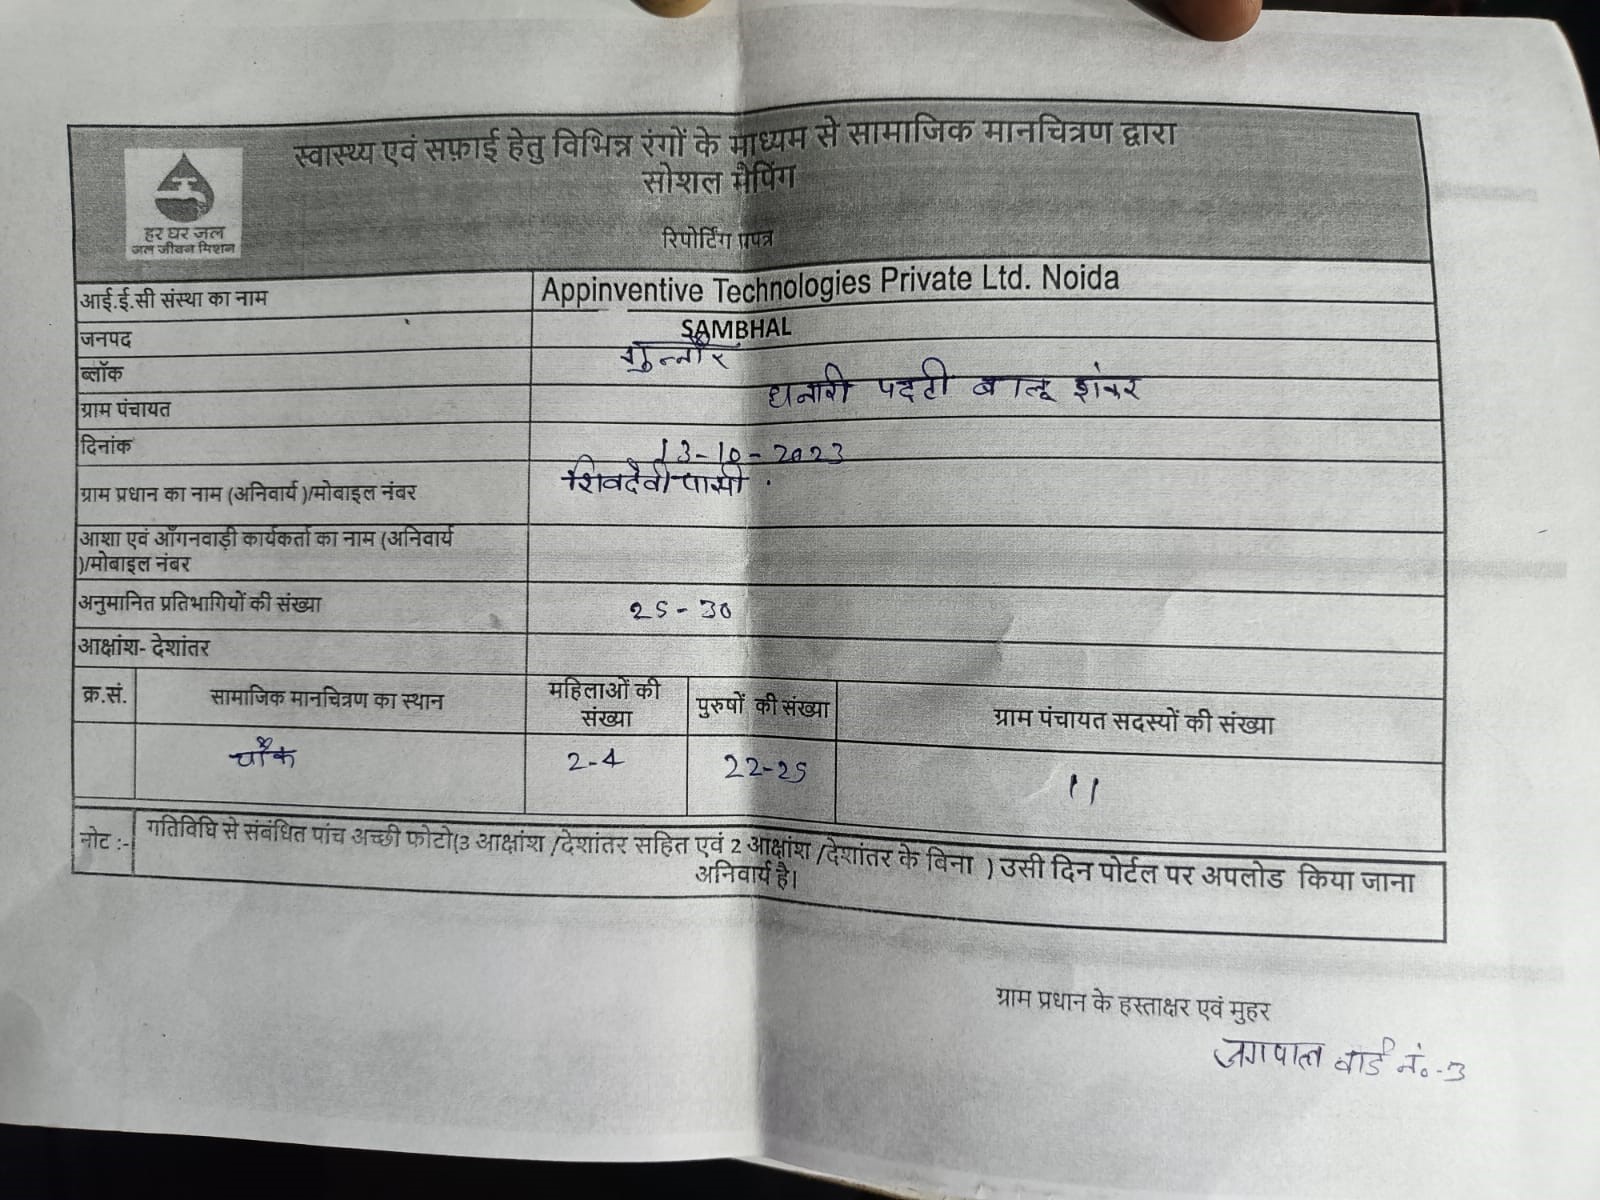 स्वास्थ्य एवं सफ़ाई हेतु विभिन्न रंगों के माध्यम से सामाजिक मानचित्रण द्वारा
सोशल मैपिंग
हर घर जल
जल जीवन मिशन
रिपोर्टिंग प्रपत्र
आई.ई.सी संस्था का नाम Appinventive Technologies Private Ltd. Noida
जनपद SAMBHAL
ब्लॉक गुन्नौर
ग्राम पंचायत धनारी पट्टी बालू शंकर
दिनांक 13-10-2023
ग्राम प्रधान का नाम (अनिवार्य )/मोबाइल नंबर शिवदेवी
आशा एवं आँगनवाड़ी कार्यकर्ता का नाम (अनिवार्य
)/मोबाइल नंबर
अनुमानित प्रतिभागियों की संख्या 25-30
आक्षांश- देशांतर
क्र.सं. सामाजिक मानचित्रण का स्थान महिलाओं की संख्या पुरुषों की संख्या ग्राम पंचायत सदस्यों की संख्या
चौक 2-4 22-25 11
नोट :- गतिविधि से संबंधित पांच अच्छी फोटो(3 आक्षांश /देशांतर सहित एवं 2 आक्षांश /देशांतर के बिना ) उसी दिन पोर्टल पर अपलोड किया जाना
अनिवार्य है।
ग्राम प्रधान के हस्ताक्षर एवं मुहर
जगपाल वार्ड नं०-3